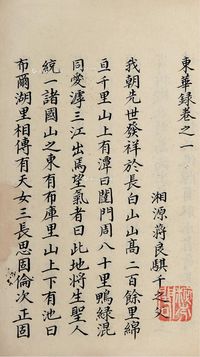 東華録卷之一
湘源蔣良騏千之
我朝先世發祥於長白山山高二百餘里綿
亘千里山上有潭曰闥門周八十里鴨綠混
同愛滹三江出焉望氣者曰此地將生聖人
統一諸國山之東有布庫里山上下有池曰
布爾湖里相傳有天女三長思固倫次正固